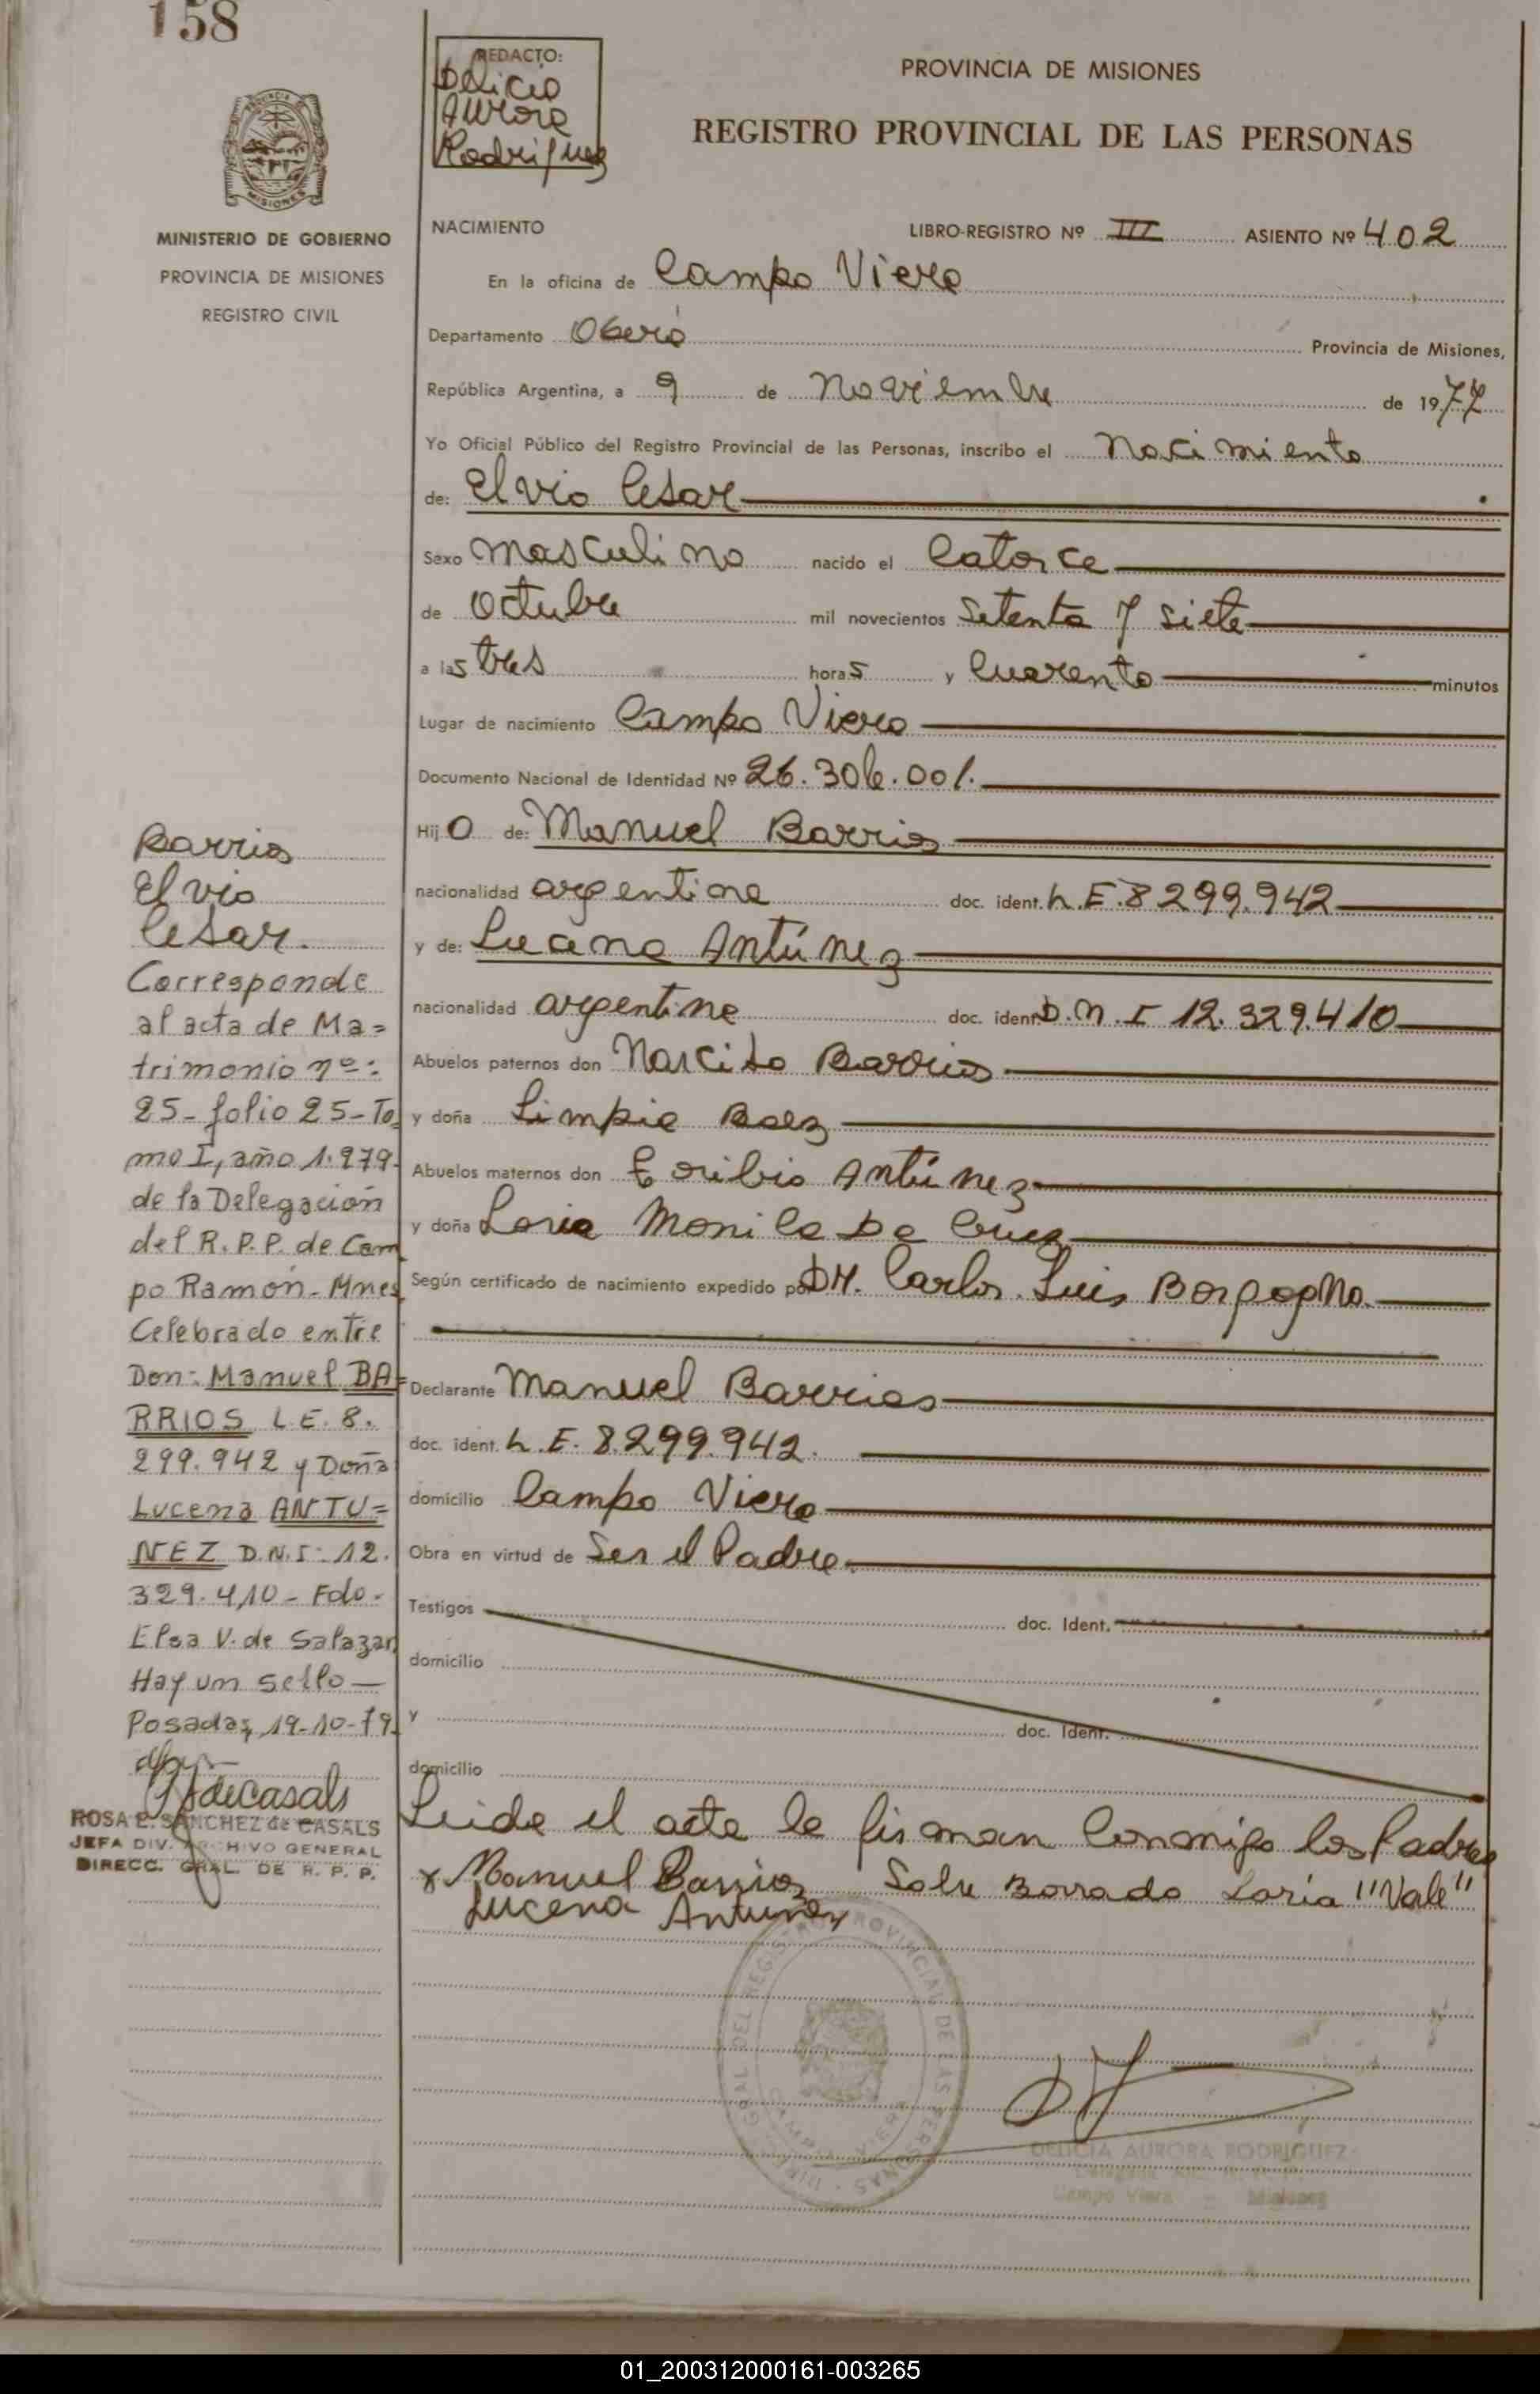 158
REDACTO:
Delicia
Aurora
Rodriguez
PROVINCIA DE MISIONES
REGISTRO PROVINCIAL DE LAS PERSONAS
MINISTERIO DE GOBIERNO
PROVINCIA DE MISIONES
REGISTRO CIVIL
NACIMIENTO LIBRO-REGISTRO Nº III ASIENTO Nº 402
En la oficina de Campo Viera
Departamento Oberá Provincia de Misiones,
República Argentina, a 9 de Noviembre de 1977
Yo Oficial Público del Registro Provincial de las Personas, inscribo el Nacimiento
de: Elvio Cesar
Sexo masculino nacido el Catorce
de Octubre mil novecientos Setenta y siete
a las tres horas y Cuarenta minutos
Lugar de nacimiento Campo Viera
Documento Nacional de Identidad Nº 26.306.001.
Hijo de: Manuel Barrios
nacionalidad argentina doc. ident. L.E. 8.299.942
y de: Lucena Antúnez
nacionalidad argentina doc. ident. D.N.I 12.329.410
Abuelos paternos don Narciso Barrios
y doña Limpia Baez
Abuelos maternos don Toribio Antúnez
y doña Loria Monila Da Cruz
Según certificado de nacimiento expedido por DR. Carlos Luis Borgogno.
Declarante Manuel Barrios
doc. ident. L.E. 8.299.942.
domicilio Campo Viera
Obra en virtud de Ser el Padre.
Testigos doc. Ident.
domicilio
y doc. Ident.
domicilio
Leida el acta la firman Conmigo los Padres
x Manuel Barrios Sobre Borrado Loria "Vale"
Lucena Antunez
Barrios
Elvio
Cesar.
Corresponde
al acta de Ma=
trimonio nº:
25- folio 25- To
mo I, año 1.979-
de la Delegación
del R.P.P. de Cam
po Ramón- Mnes
Celebrado entre
Don: Manuel BA=
RRIOS L.E. 8.
299.942 y Doña
Lucena ANTU=
NEZ D.N.I: 12.
329.410- Fdo.
Elsa V. de Salazar
Hay un sello—
Posadas, 19-10-79.
ROSA E. SANCHEZ de CASALS
JEFA DIV. ARCHIVO GENERAL
DIRECC. GRAL. DE R. P. P.
DELICIA AURORA RODRIGUEZ
Campo Viera - Misiones
01_200312000161-003265